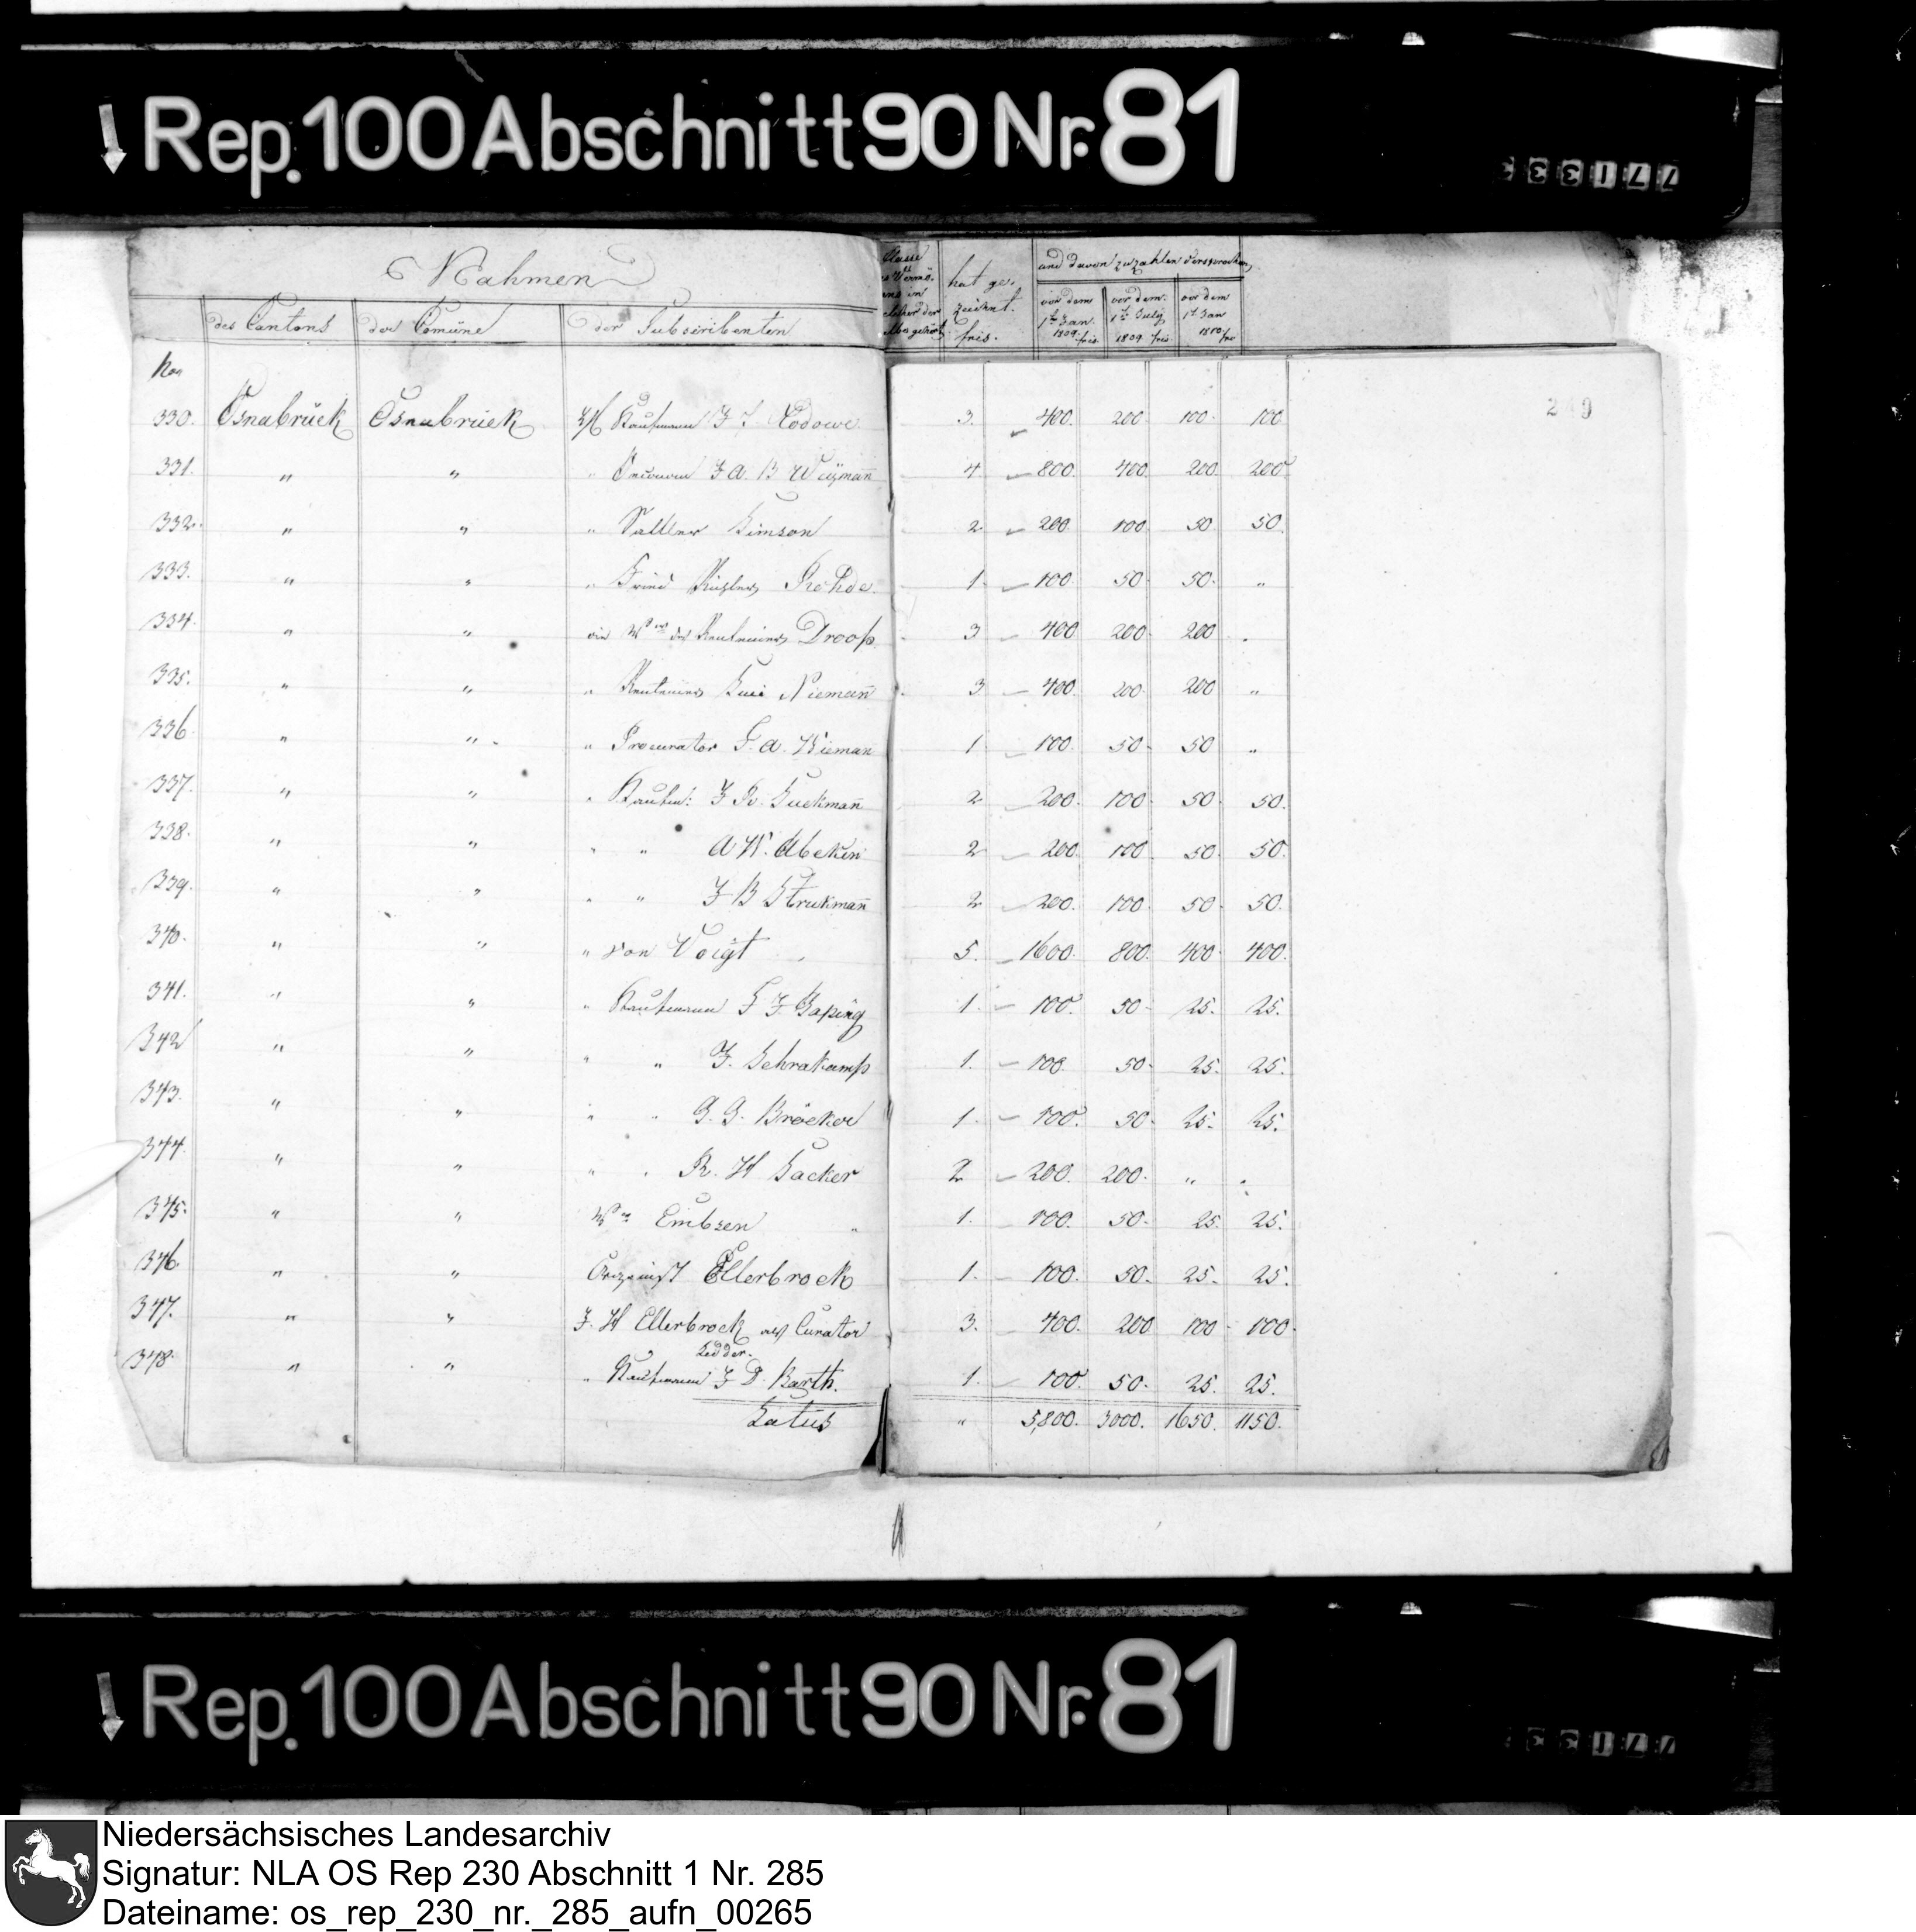 Rep. 100 Abschnitt 90 Nr. 81
Nahmen
des Cantons der Comüne der Subscribenten
hat ge-
zeichnt.
frcs.
und davon zu zahlen versprochen
vor dem 1t Jan. 1809 frcs.
vor dem 1t July 1809 frcs
vor dem 1t Jan 1810 frc
249
Nro
330. Osnabrück Osnabrück Kaufmann 3. 400. 200. 100. 100
331. " " " 4. 800. 400. 200. 200
332. " " " Sattler Simson 2 200. 100. 50. 50.
333. " " " Rohde. 1. 100. 50. 50. "
334. " " die Wwe des Rentmeisters Droop. 3 400 200. 200 "
335. " " " Rentmeister Niemañ 3 400. 200. 200 "
336 " " " Procurator 1. 100. 50. 50 "
337. " " " Kaufm: 2 200. 100. 50. 50.
338. " " " " A W. Abeken 2 200. 100. 50. 50.
339. " " " " J B Strukmañ 2 200. 100. 50. 50.
340. " " " von Voigt 5. 1600. 800. 400. 400.
341. " " " Kaufmann 1. 100. 50. 25. 25.
342 " " " " J. Schrakamp 1. 100. 50. 25. 25.
343. " " " " G. G. Bröcker 1. 100. 50. 25. 25.
344. " " " " R. H 2 200. 200. " "
345. " " Wwe Embsen 1. 100. 50. 25. 25.
346. " " Organist Ellerbrock 1. 100. 50. 25. 25.
347. " " J. H Ellerbrock als Curator 3. 400. 200 100. 100.
Ledder.
348. " " " Kaufmann J D. Barth. 1. 100. 50. 25. 25.
Latus " 5,800. 3000. 1650. 1150.
Rep. 100 Abschnitt 90 Nr. 81
Niedersächsisches Landesarchiv
Signatur: NLA OS Rep 230 Abschnitt 1 Nr. 285
Dateiname: os_rep_230_nr._285_aufn_00265